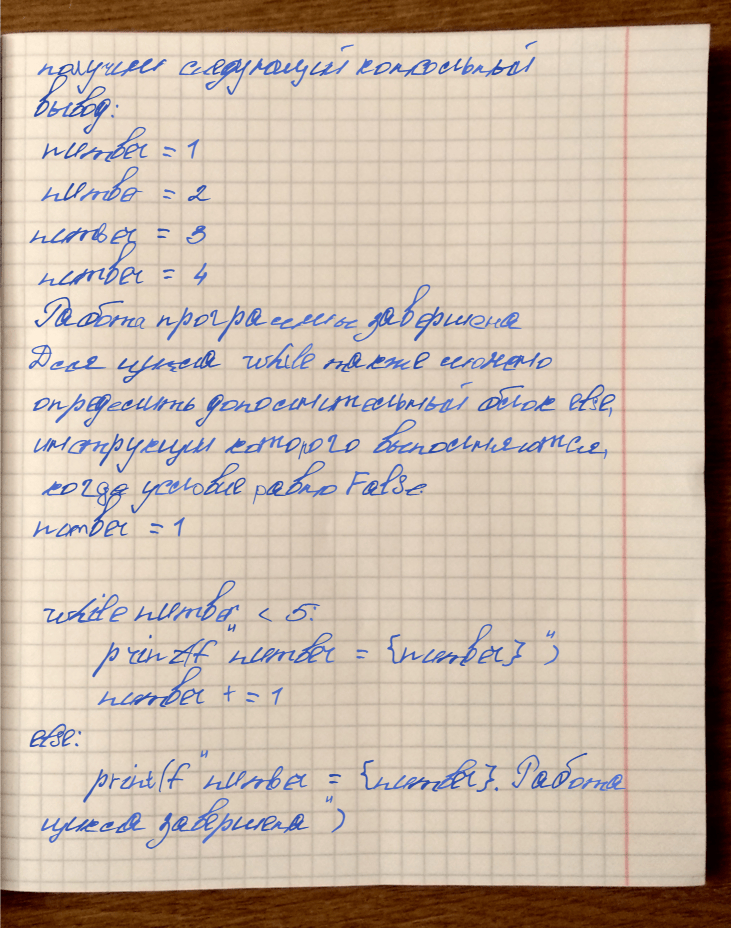 получим следующий консольный
вывод:
number = 1
numbe = 2
number = 3
number = 4
Работа программы завершена
Для цикла while также можно
определить дополнительный блок else,
инструкции которого выполняются,
когда условие равно False
number = 1
while number < 5:
print(f "number = {number} ")
number += 1
else:
print(f "number = {number}. Работа
цикла завершена ")